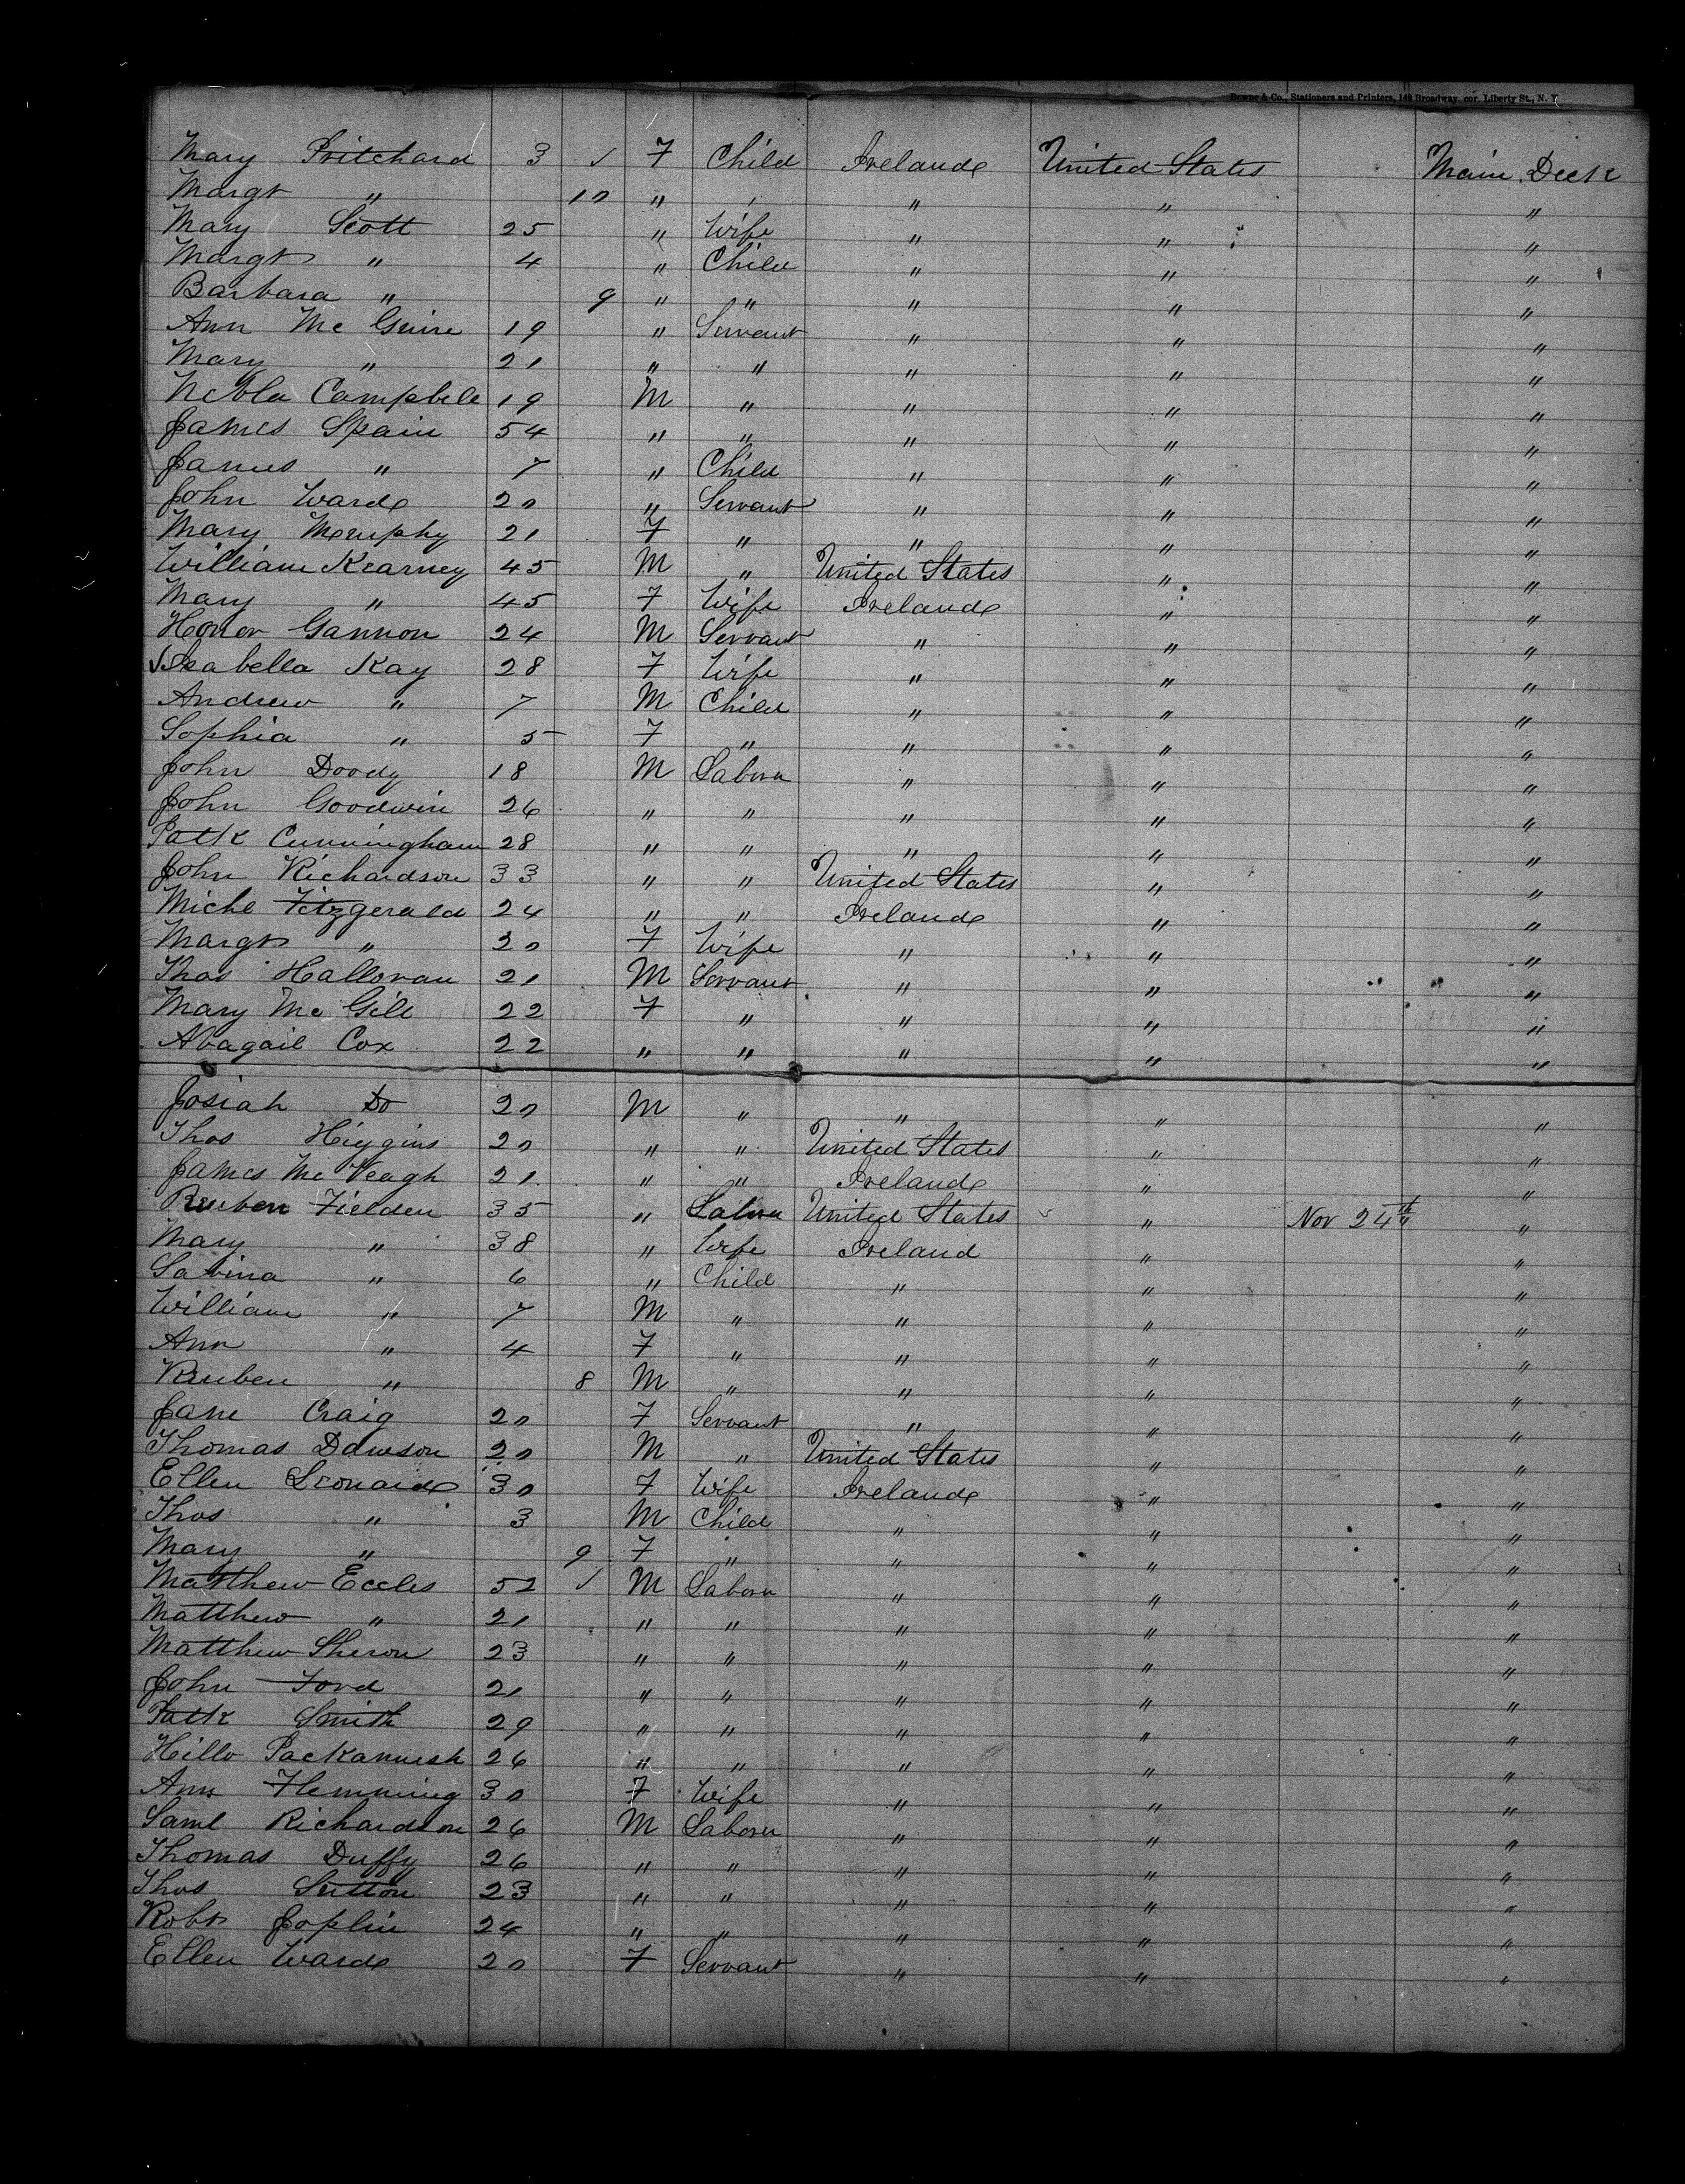 Bowne & Co., Stationers and Printers, 149 Broadway, cor. Liberty St., N. Y
Mary Pritchard 3 ✓ F Child Ireland United States Main Deck
Margt " 10 " " " " "
Mary Scott 25 " Wife " " "
Margt " 4 " Child " " "
Barbara " 9 " " " " "
Ann Mc Guire 19 " Servant " " "
Mary " 21 " " " " "
Campbell 19 M " " " "
James Spain 54 " " " " "
James " 7 " Child " " "
John Ward 20 " Servant " " "
Mary Murphy 21 F " " " "
William Kearney 45 M " United States " "
Mary " 45 F Wife Ireland " "
Honor Gannon 24 M Servant " " "
✓ Isabella Kay 28 F Wife " " "
Andrew " 7 M Child " " "
Sophia " 5 F " " " "
John Doody 18 M Laborer " " "
John Goodwin 26 " " " " "
Patk Cunningham 28 " " " " "
John Richardson 33 " " United States " "
Michl Fitzgerald 24 " " Ireland " "
Margt " 20 F Wife " " "
Thos Halloran 21 M Servant " " "
Mary Mc Gill 22 F " " " "
Abagail Cox 22 " " " " "
Josiah Do 20 M " " " "
Thos Higgins 20 " " United States " "
James Mc Veagh 21 " " Ireland " "
Reuben Fielden 35 " Laborer United States " Nov 24th "
Mary " 38 " Wife Ireland " "
Sabina " 6 " Child " " "
William " 7 M " " " "
Ann " 4 F " " " "
Reuben " 8 M " " " "
Jane Craig 20 F Servant " " "
Thomas Dawson 20 M " United States " "
Ellen Leonard 30 F Wife Ireland " "
Thos " 3 M Child " " "
Mary " 9 F " " " "
Matthew Eccles 52 ✓ M Laborer " " "
Matthew " 21 " " " " "
Matthew Sheron 23 " " " " "
John Ford 21 " " " " "
Patk Smith 29 " " " " "
26 " " " " "
Ann Flemming 30 F Wife " " "
Saml Richardson 26 M Laborer " " "
Thomas Duffy 26 " " " " "
Thos Sutton 23 " " " " "
Robt Joplin 24 " " " " "
Ellen Ward 20 F Servant " " "